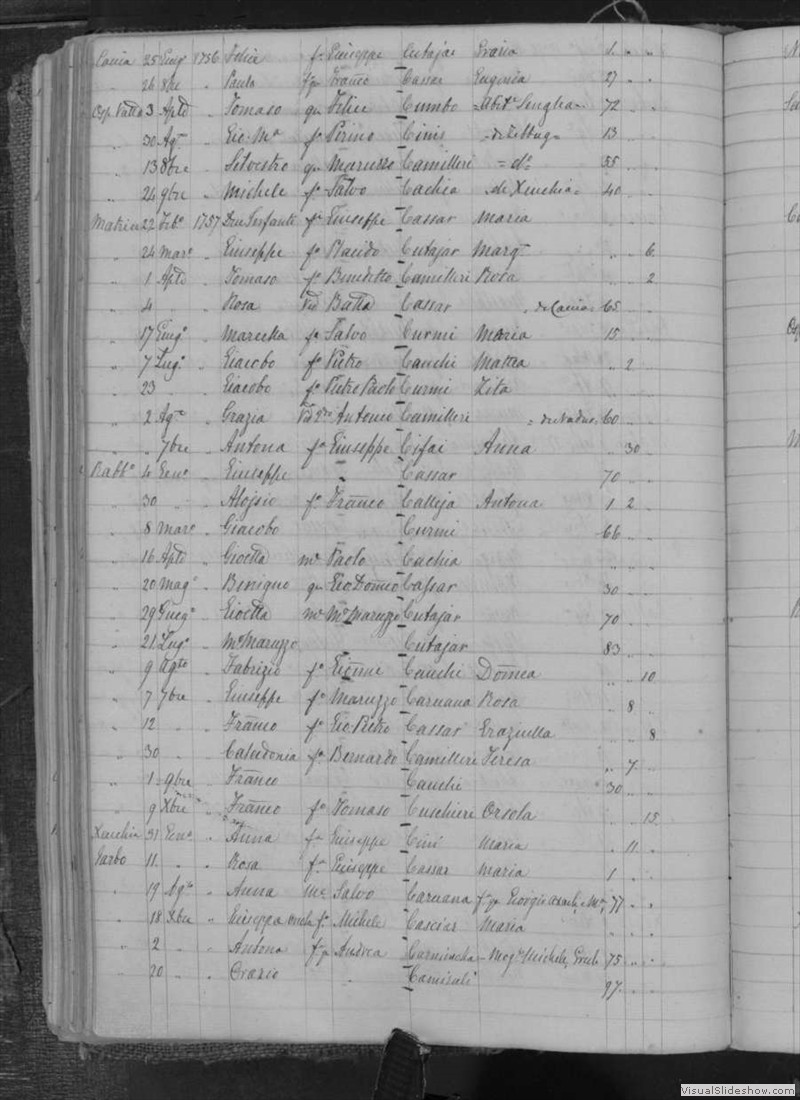 Caccia 25 Giug 1756 Felice fo Giuseppe Cutajar Grazia 1 " "
" 26 8bre " Paulo fqm Franco Cassar Eugenia 27 " "
Osp. Valta 3 Aple " Tomaso qm Felice Cumbo Abite Senglea 72
" 30 Ago " Gio: Ma fo Perino Cinis de Zebbug 13
" 13 8bre " Silvestro qm Maruzzo Camilleri = do 55
" 24 9bre " Michele fo Salvo Cachia de Xeuchia 40
Matrice 22 Febo 1757 Infante fo Giuseppe Cassar Maria
" 24 Maro " Giuseppe fo Placido Cutajar Marga " " 6
" 1 Aple " Tomaso fo Benedetto Camilleri Rosa " " 2
" 4 " Rosa Vid Batta Cassar 65
" 17 Giugo " Marcella fa Salvo Curmi Maria 15
" 7 Lugo " Giacobo fo Pietro Cauchi Mattea " 2
" 23 " Giacobo fo Pietro Paolo Curmi Zita
" 2 Ago " Grazia Vid Antonio Camilleri de Nadur 60
" " 7bre " Antona fa Giuseppe Cifai Anna " 30
Rabbo 4 Geno " Giuseppe " Cassar 70
" 30 " Alojsio fo Franco Calleja Antona 1 2
" 8 Maro " Giacobo Curmi 66
" 16 Aple " Gioetta me Paolo Cachia " "
" 20 Mago " Benigno qm Gio Domeco Cassar 30
" 29 Giugo " Gioetta me Mo Maruzzo Cutajar 70
" 21 Lugo " Mo Maruzzo Cutajar 83
" 9 Agto " Fabrizio fo Gionne Cauchi Domca " " 10
" 7 7bre " Giuseppe fo Maruzzo Caruana Rosa " 8
" 12 " Franco fo Gio Pietro Cassar Graziulla " " 8
" 30 " Calcedonia fa Bernardo Camilleri Teresa " 7
" 1 9bre " Franco Cauchi 30
" 9 Xbre " Franco fo Tomaso Cuschieri Orsola 15
Xeuchia 31 Geno " Anna fa Giuseppe Cini Maria " 11
Garbo 11 " Rosa fa Giuseppe Cassar Maria 1 "
" 19 Ago " Anna me Salvo Caruana fqm Giorgio 77
" 18 Xbre " Giuseppa fa Michele Casciar Maria
" 2 " Antona fqm Andrea Mogle Michele 75
" 20 " Orazio " Camisuli 97
VisualSlideshow.com